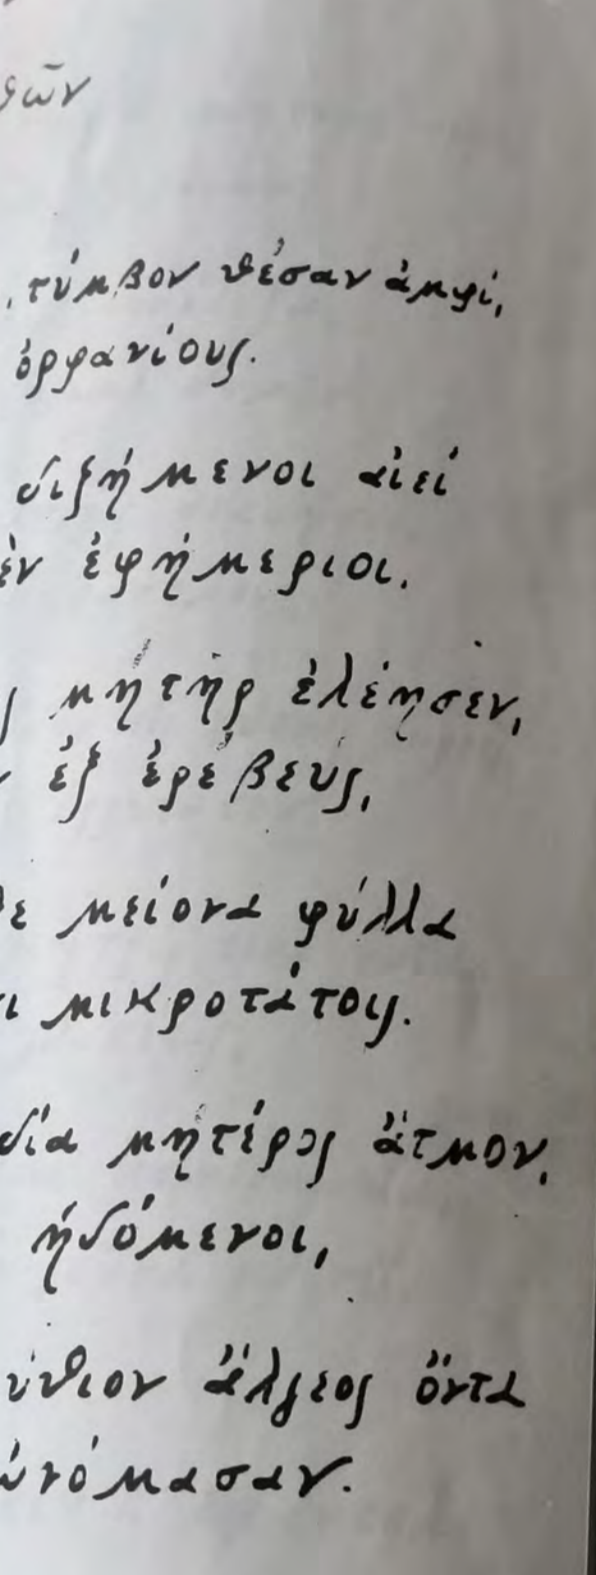 θῶν
, τύμβον θέσαν ἀμφί,
ὀρφανίους.
διζήμενοι αἰεί
ὲν ἐφήμεριοι.
ς μήτηρ ἐλέησεν,
ν ἐξ ἐρέβευς,
θε μείονα φύλλα
ι μικροτάτοις.
δία μητέρος ἄτμον,
ἡδόμενοι,
ύθιον ἄλγεος ὄντα
ὠνόμασαν.